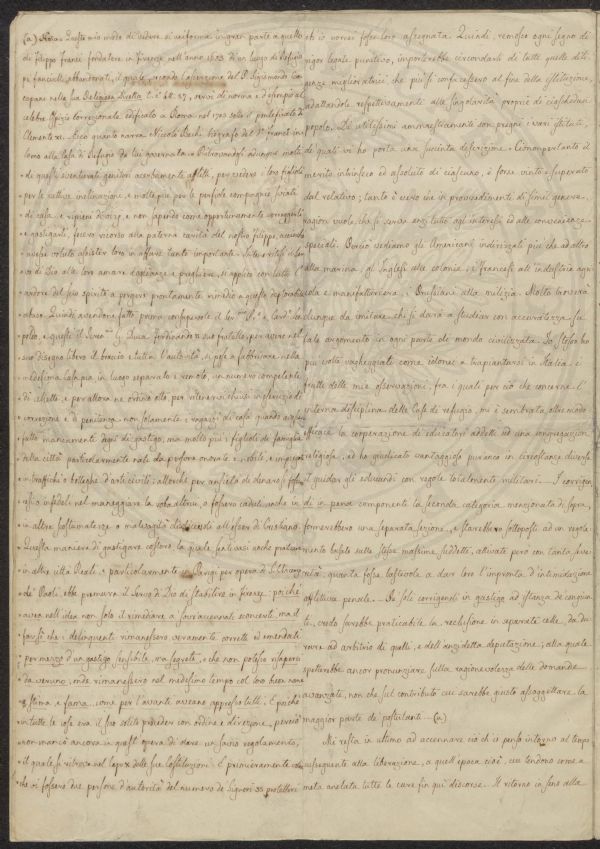 (a) Nota. Questo mio modo di vedere si uniforma in gran parte a quello
di Filippo Franci fondatore in Firenze nell'anno 1653 di un luogo di refugio
pe' fanciulli abbandonati, il quale, secondo l'asserzione del P. Sigismondo
nella sua servì di norma, e d'esempio al
celebre Ospizio correzionale edificato a Roma nel 1703 sotto il pontificato di
Clemente XI. Ecco quanto narra Niccolò Bechi biografo del Franci in
"torno alla Casa di Refugio da lui governata
"di questi sventurati genitori acerbamente afflitti, per vedere i loro figlioli
"per le cattive inclinazioni, e molto più per le perfide compagnie sviati
"di casa, e ripieni di vizi, e non sapendo come opportunamente correggerli
"e gastigarli, fecero ricorso alla paterna carità del nostro Filippo, acciocchè
"avesse voluto assister loro in affare tanto importante.
"vo di Dio alle loro amare doglianze e preghiere, si applicò con tutto l'
"ardore del suo spirito a porgere prontamente rimedio a questo deplorabile
"abuso. Quindi avendone fatto prima consapevole il
"poldo, e questi il Gran Duca Ferdinando II suo fratello, per avere nel
"suo disegno libero il braccio e tutta l'autorità, si pose a fabbricare nella
"medesima Casa, ma in luogo separato e remoto, un numero competente
"di cellette, e per allora ne ordinò otto, per ritenervi chiusi in esercizio di
"correzione e di penitenza non solamente i ragazzi di casa quando avesser
"fatto mancamenti degni di gastigo, ma molto più i figlioli di famiglia
"della città particolarmente nati da persone onorate e nobili, e impiegati
"in traffichi o botteghe d'arte civili; allorchè per ansietà de' denari fosser
"resi infedeli nel maneggiare la roba altrui, o fossero caduti anche in
"in altre scostumatezze o malvagità disdicevoli all'esser di Cristiano.
"Questa maniera di gastigare costoro, la quale sentivasi anche praticare
"in altre città Reali, e particolarmente in Parigi per opera di S. Vincenzo
"de' Paoli, ebbe premura il Servo di Dio di stabilire in Firenze, poichè
"avea nell'idea non solo il rimediare a sopraccennati sconcerti, ma il
"far sì che i delinquenti rimanessero veramente corretti ed emendati
"per mezzo d'un gastigo sensibile, ma segreto, e che non potesse risapersi
"da veruno, onde rimanessero nel medesimo tempo col loro buon nome
"stima, e fama, come per l'avanti aveano appresso tutti. E poichè
"in tutte le cose era il suo solito proceder con ordine e direzione, perciò
"non mancò ancora in quest'opera di dare un savio regolamento,
"il quale si ritrova nel Capo delle sue Costituzioni. E primieramente volle
"che vi fossero due persone d'autorità del numero de' Signori 33 protettori
sto io vorrei fosse loro assegnata. Quindi, remosso ogni segno di
rigor legale punitivo, importerebbe circondarli di tutte quelle dili
genze miglioratrici che più si confacessero al fine della istituzione,
adattandole respettivamente alle singolarità proprie di ciaschedun
popolo. Di utilissimi ammaestramenti son pregni i varj istituti,
de' quali vi ho porta una succinta descrizione. Ciononpertanto il
merito intrinseco ed assoluto di ciascuno, è forse vinto e superato
dal relativo; tanto è vero che in provvedimenti di simil genere
ragion vuole, che si serva anzi tutto agl'interessi ed alle convenienze
speciali. Perciò vediamo gli Americani indirizzati più che ad altro
alla marina, gl'Inglesi alle colonie, i Francesi all'industria agri
cola e manifatturiera, i Prussiani alla milizia. Molto troverà
dunque da imitare chi si darà a studiar con accuratezza su
tale argomento in ogni parte di mondo civilizzato. Io stesso ho
più volte vagheggiati come idonei a trapiantarsi in Italia i
frutti delle mie osservazioni, fra i quali per ciò che concerne l'
interna disciplina delle Case di refugio, mi è sembrata oltre modo
efficace la cooperazione di educatori addetti ad una congregazione
religiosa, ed ho giudicato vantaggiosa pur anco in circostanze diverse
il guidar gli educandi con regole totalmente militari. — I corrigen
di in pena componenti la seconda categoria menzionata di sopra,
formerebbero una separata sezione, e starebbero sottoposti ad un regola
mento basato sulle stesse massime suddette, attivate però con tanta seve
rità, quanta fosse bastevole a dar loro l'impronta d'intimidazione
afflittiva penale. — Pe' soli corrigendi in gastigo ad istanza de' congiun
ti, credo sarebbe praticabile la reclusione in separate celle, da du
rare ad arbitrio di quelli, e dell'anzidetta deputazione; alla quale
spetterebbe ancor pronunziare sulla ragionevolezza delle domande
avanzate, non che sul contributo cui sarebbe giusto assoggettare la
maggior parte de' postulanti. — (a)
Mi resta in ultimo ad accennare ciò ch'io penso intorno al tempo
susseguente alla liberazione, a quell'epoca cioè, cui tendono come a
meta anelata tutte le cure fin qui discorse. Il ritorno in seno alla